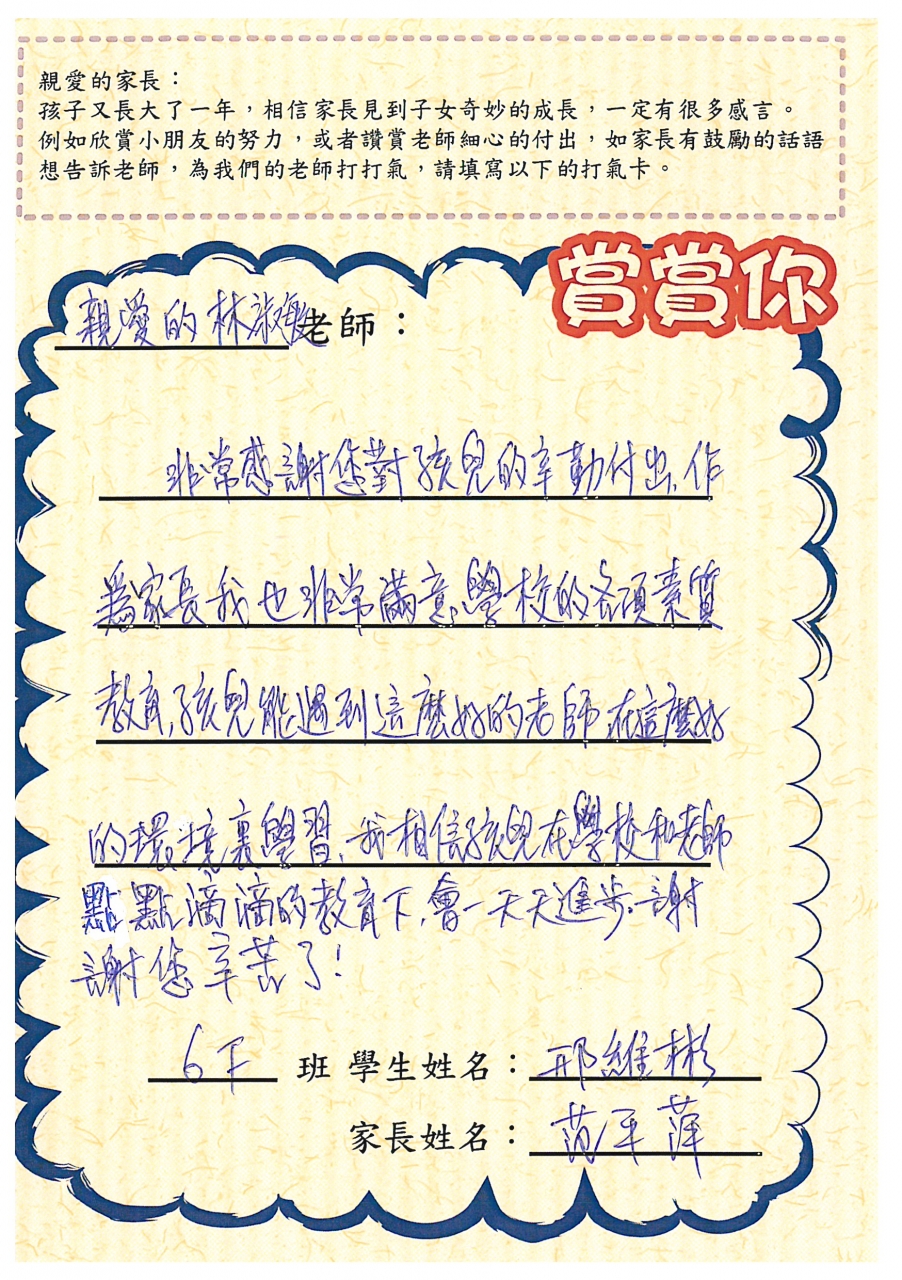 親愛的家長：
孩子又長大了一年，相信家長見到子女奇妙的成長，一定有很多感言。
例如欣賞小朋友的努力，或者讚賞老師細心的付出，如家長有鼓勵的話語
想告訴老師，為我們的老師打打氣，請填寫以下的打氣卡。
賞賞你
親愛的林淑敏老師：
非常感謝您對孩兒的辛勤付出、作
為家長我也非常滿意學校的各項素質
教育,孩兒能遇到這麼好的老師,在這麼好
的環境裏學習、我相信孩兒在學校和老師
點點滴滴的教育下,會一天天進步.謝
謝您辛苦了!
6F 班 學生姓名：邢維彬
家長姓名：范平萍